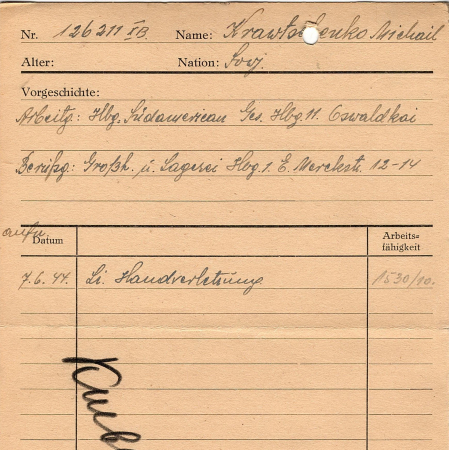 Nr. 126211 XB Name: Krawtschenko Michail
Alter: Nation: Sovj.
Vorgeschichte:
Arbeitg: Hbg. Südamerican Ges. Hbg 11. Oswaldkai
Berufsg: Großh. u. Lagerei Hbg. 1. E. Merckstr. 12-14
aufn.
Datum Arbeits-
fähigkeit
7.6.44. Li. Handverletzung 1530/10.